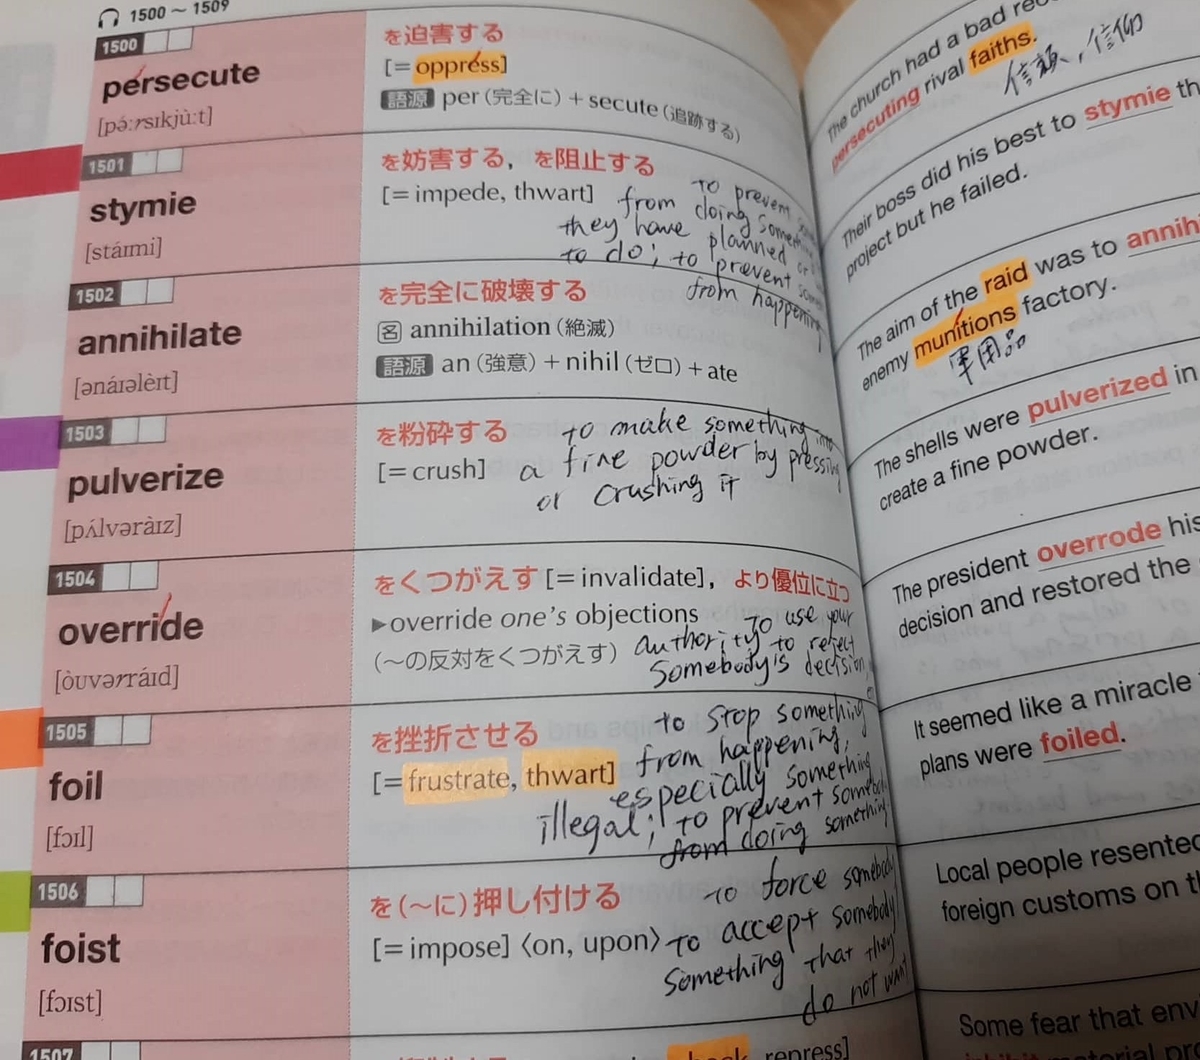 1500 ~ 1509
1500
persecute
[pə́ːrsɪkjùːt]
を迫害する
[= oppress]
語源 per (完全に) + secute (追跡する)
1501
stymie
[stáɪmi]
を妨害する, を阻止する
[= impede, thwart]
to prevent
from doing something
they have planned
to do; to prevent
from happening
1502
annihilate
[ənáɪəlèɪt]
を完全に破壊する
名 annihilation (絶滅)
語源 an (強意) + nihil (ゼロ) + ate
1503
pulverize
[pʌ́lvəràɪz]
を粉砕する
[= crush]
to make something into
a fine powder by pressing
or crushing it
1504
override
[òʊvərráɪd]
をくつがえす [= invalidate], より優位に立つ
▶override one's objections
(~の反対をくつがえす)
To use your
authority to reject
somebody's decision,
1505
foil
[fɔɪl]
を挫折させる
[= frustrate, thwart]
to stop something
from happening,
especially something
illegal; to prevent somebody
from doing something
1506
foist
[fɔɪst]
を (~に) 押し付ける
[= impose] 〈on, upon〉
to force somebody
to accept somebody/
something that they
do not want
1507
repress]
The church had a bad
persecuting rival faiths.
信頼、信仰
Their boss did his best to stymie
project but he failed.
The aim of the raid was to
enemy munitions factory.
軍用品
The shells were pulverized in
create a fine powder.
The president overrode his
decision and restored the
It seemed like a miracle
plans were foiled.
Local people resented
foreign customs on
Some fear that